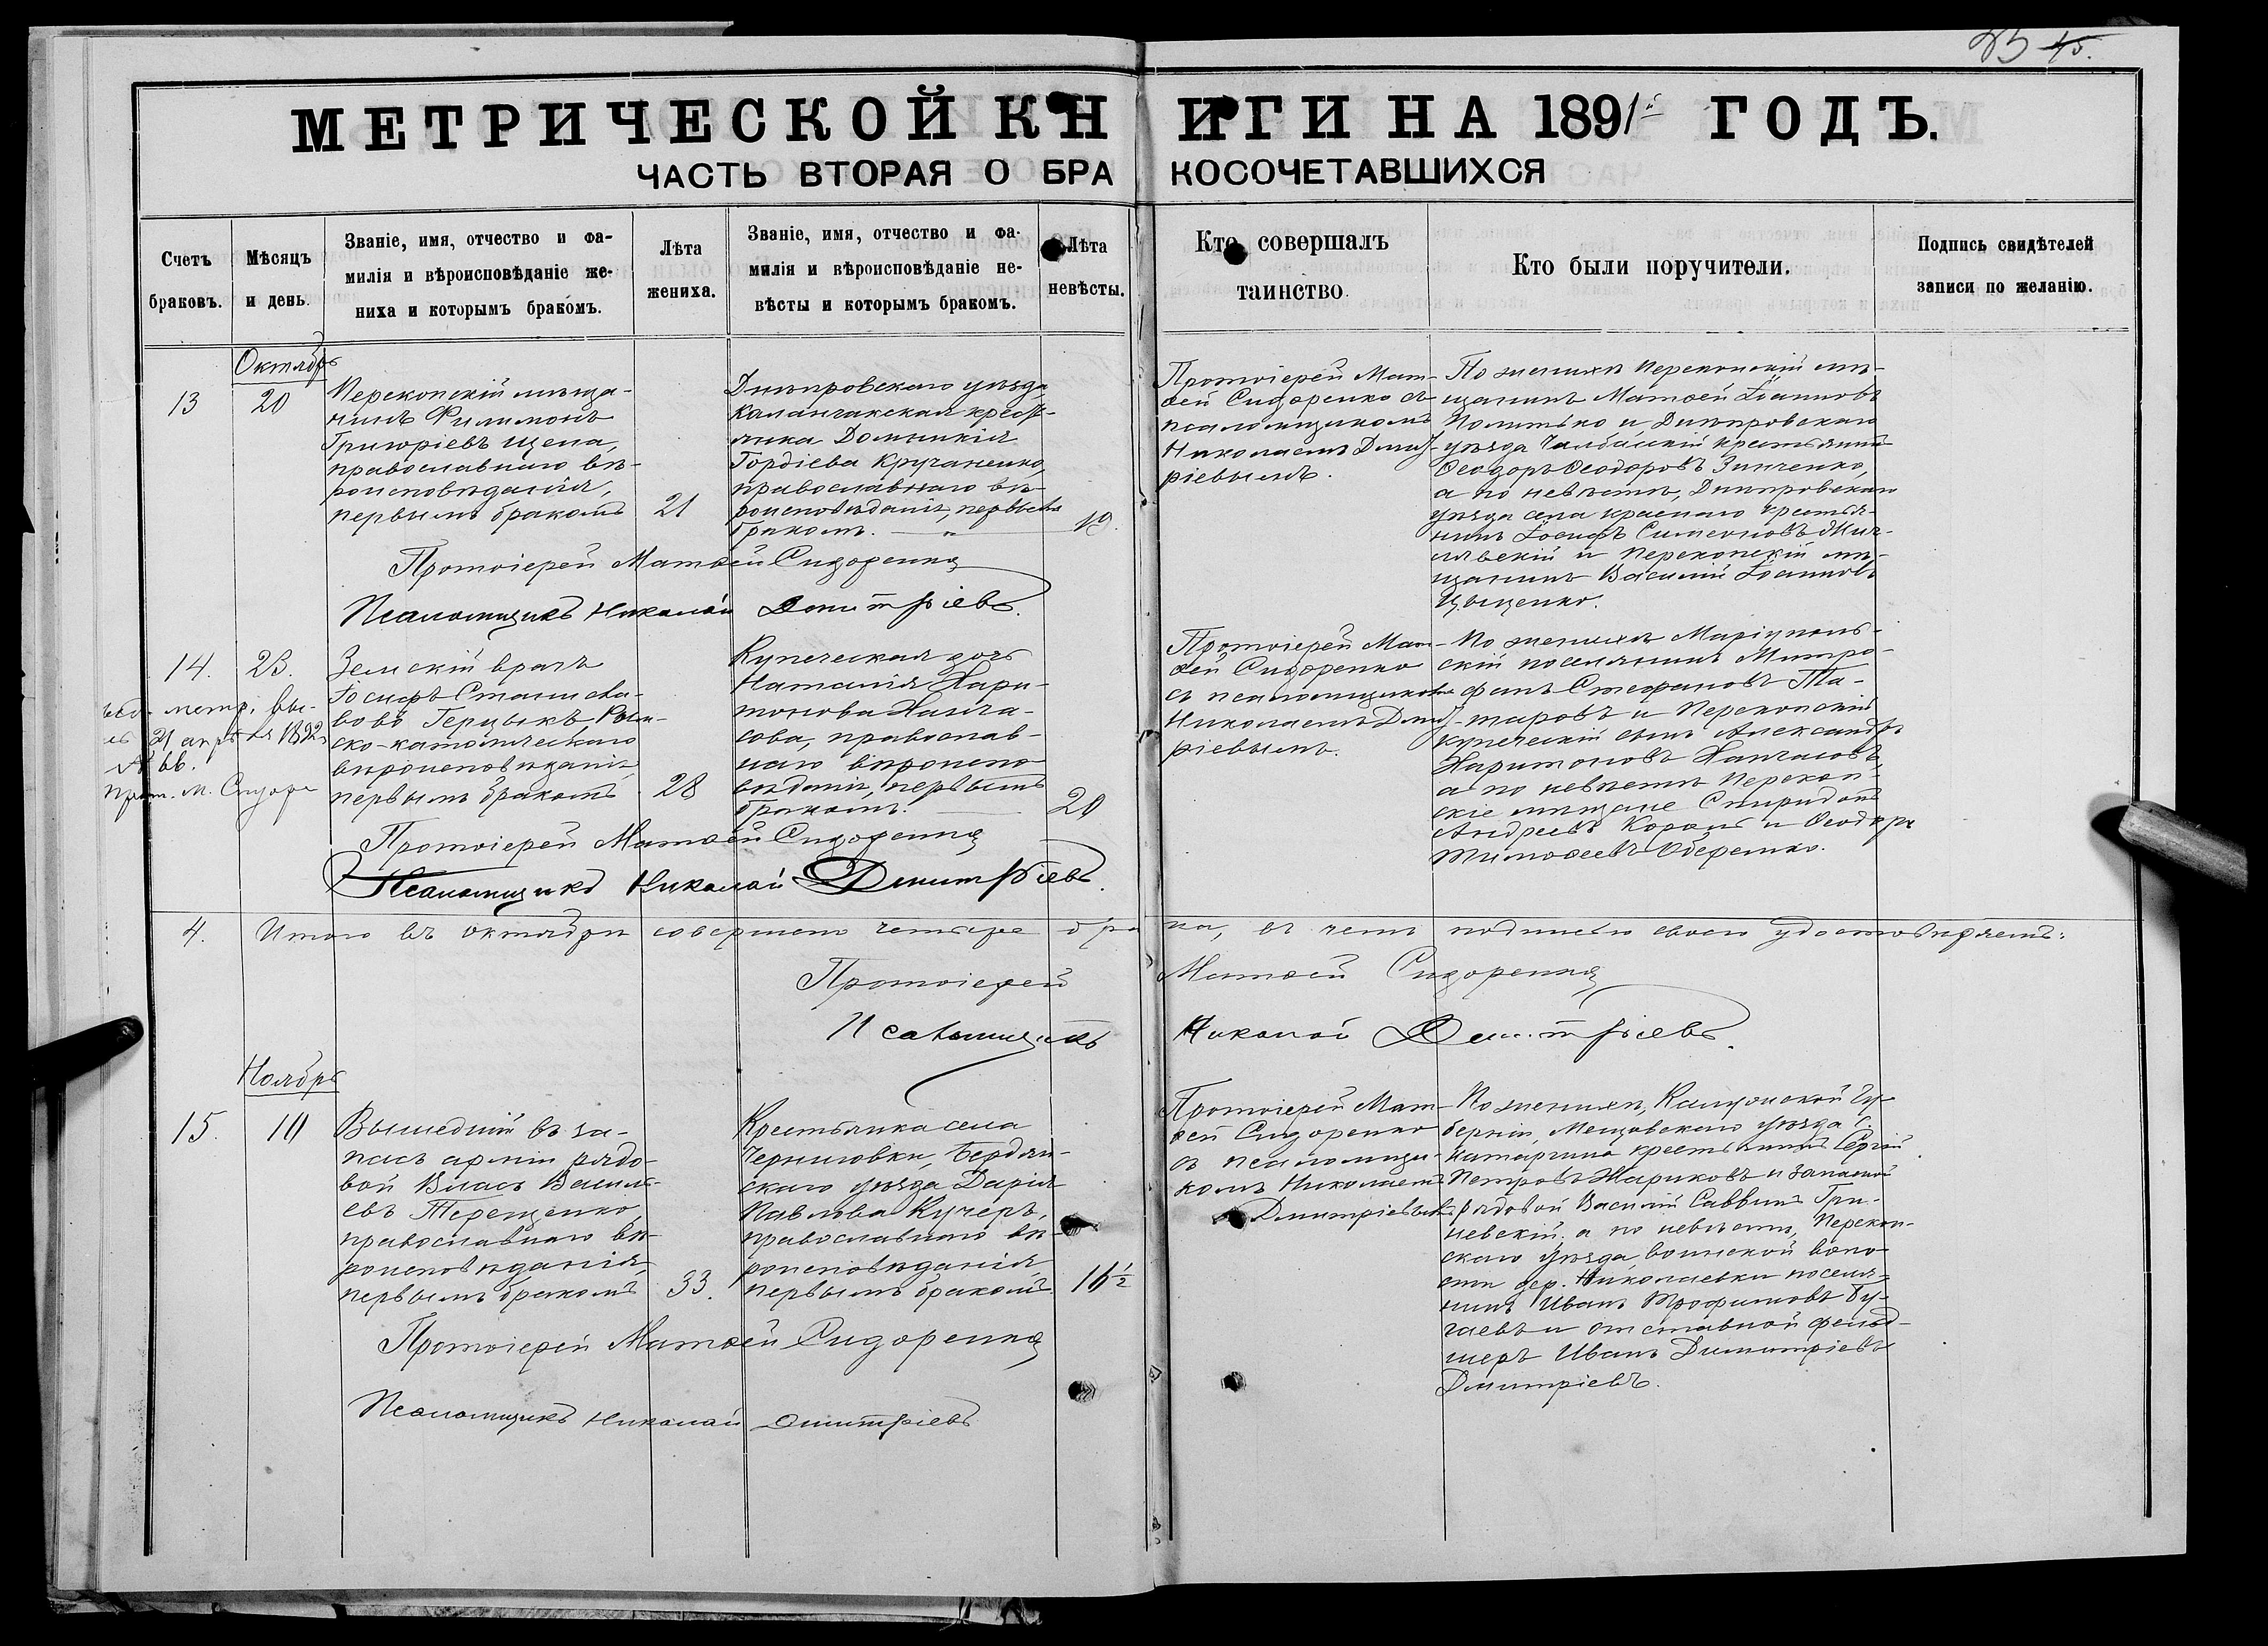 МЕТРИЧЕСКОЙ КНИГИ НА 1891й ГОДЪ.
ЧАСТЬ ВТОРАЯ О БРАКОСОЧЕТАВШИХСЯ
Счетъ
браковъ.
Мѣсяцъ
и день.
Званіе, имя, отчество и фа-
милія и вѣроисповѣданіе же-
ниха и которымъ бракомъ.
Лѣта
жениха.
Званіе, имя, отчество и фа-
милія и вѣроисповѣданіе не-
вѣсты и которымъ бракомъ.
Лѣта
невѣсты.
Кто совершалъ
таинство.
Кто были поручители.
Подпись свидѣтелей
записи по желанію.
Октябрь
13
20
Перекопскій мѣща-
нинъ Филимонъ
Григоріевъ Щепа,
православнаго вѣ-
роисповѣданія,
первымъ бракомъ
21
Днѣпровскаго уѣзда,
Каланчакская крестъ-
янка Домникія
Гордіева Кручаненко,
православнаго вѣ-
роисповѣданія, первымъ
бракомъ.
19.
Протоіерей Мат-
ѳей Сидоренко съ
псаломщикомъ
Николаемъ Димит-
ріевымъ.
По женихѣ Перекопскій мѣ-
щанинъ Матѳей Іоанновъ
и Днѣпровскаго
уѣзда Чалбасскій крестьянинъ
Ѳеодоръ Ѳеодоровъ Зинченко,
а по невѣстѣ, Днѣпровскаго
уѣзда села Краснаго крестья-
нинъ Іосифъ Симеоновъ
и Перекопскій мѣ-
щанинъ Василій Іоанновъ
Цыценко.
Протоіерей Матѳей Сидоренко
Псаломщикъ Николай Димитріевъ.
14.
23.
Земскій врачъ
Іосифъ Станисла-
вовъ Герцыкъ, Рим-
ско-католическаго
вѣроисповѣданія,
первымъ бракомъ
28
Купеческая дочь
Наталія Хари-
тонова Ханга-
сова, православ-
наго вѣроиспо-
вѣданія, первымъ
бракомъ.
20
Протоіерей Мат-
ѳей Сидоренко
съ псаломщикомъ
Николаемъ Димит-
ріевымъ.
По женихѣ Маріуполь-
скій поселянинъ Митро-
фанъ Стефановъ Та-
таровъ и Перекопскій
купеческій сынъ Александръ
Харитоновъ Хангасовъ,
а по невѣстѣ Перекоп-
скіе мѣщане Спиридонъ
Андреевъ Король и Ѳеодоръ
Тимоѳеевъ
метр. вы-
21 апрѣля 1892
№ 66.
Прот. М. Сидоре
Протоіерей Матѳей Сидоренко
Псаломщикъ Николай Димитріевъ.
4. Итого въ октябрѣ совершено четыре брака, въ чемъ подписью своею удостовѣряемъ:
Протоіерей Матѳей Сидоренко
Псаломщикъ Николай Димитріевъ.
Ноябрь
15.
10
Вышедшій въ за-
пасъ арміи рядо-
вой Власъ Василь-
евъ Терещенко,
православнаго вѣ-
роисповѣданія,
первымъ бракомъ
33.
Крестьянка села
Черниговки, Бердян-
скаго уѣзда Дарія
Павлова Кучеръ,
православнаго вѣ-
роисповѣданія,
первымъ бракомъ
16½
Протоіерей Мат-
ѳей Сидоренко
съ псаломщи-
комъ Николаемъ
Димитріевымъ
По женихѣ, Калужской гу-
берніи, Мещовскаго уѣзда с.
крестьянинъ Сергій
Петровъ Жариковъ и запасной
рядовой Василій Саввинъ Гри-
невскій, а по невѣстѣ, Перекоп-
скаго уѣзда, воинской воло-
сти дер. Николаевки поселя-
нинъ Иванъ Трофимовъ Бу-
гаевъ и отставной фельд-
шеръ Иванъ Димитріевъ
Димитріевъ.
Протоіерей Матѳей Сидоренко
Псаломщикъ Николай Димитріевъ